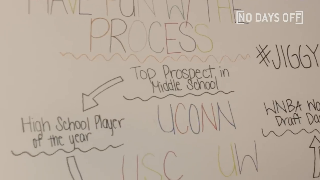 HAVE FUN W/ THE
NO DAYS OFF
PROCESS
#JIGGY
Top Prospect in
Middle School
High School Player
of the year
UCONN
WNBA
Draft
USC
UW